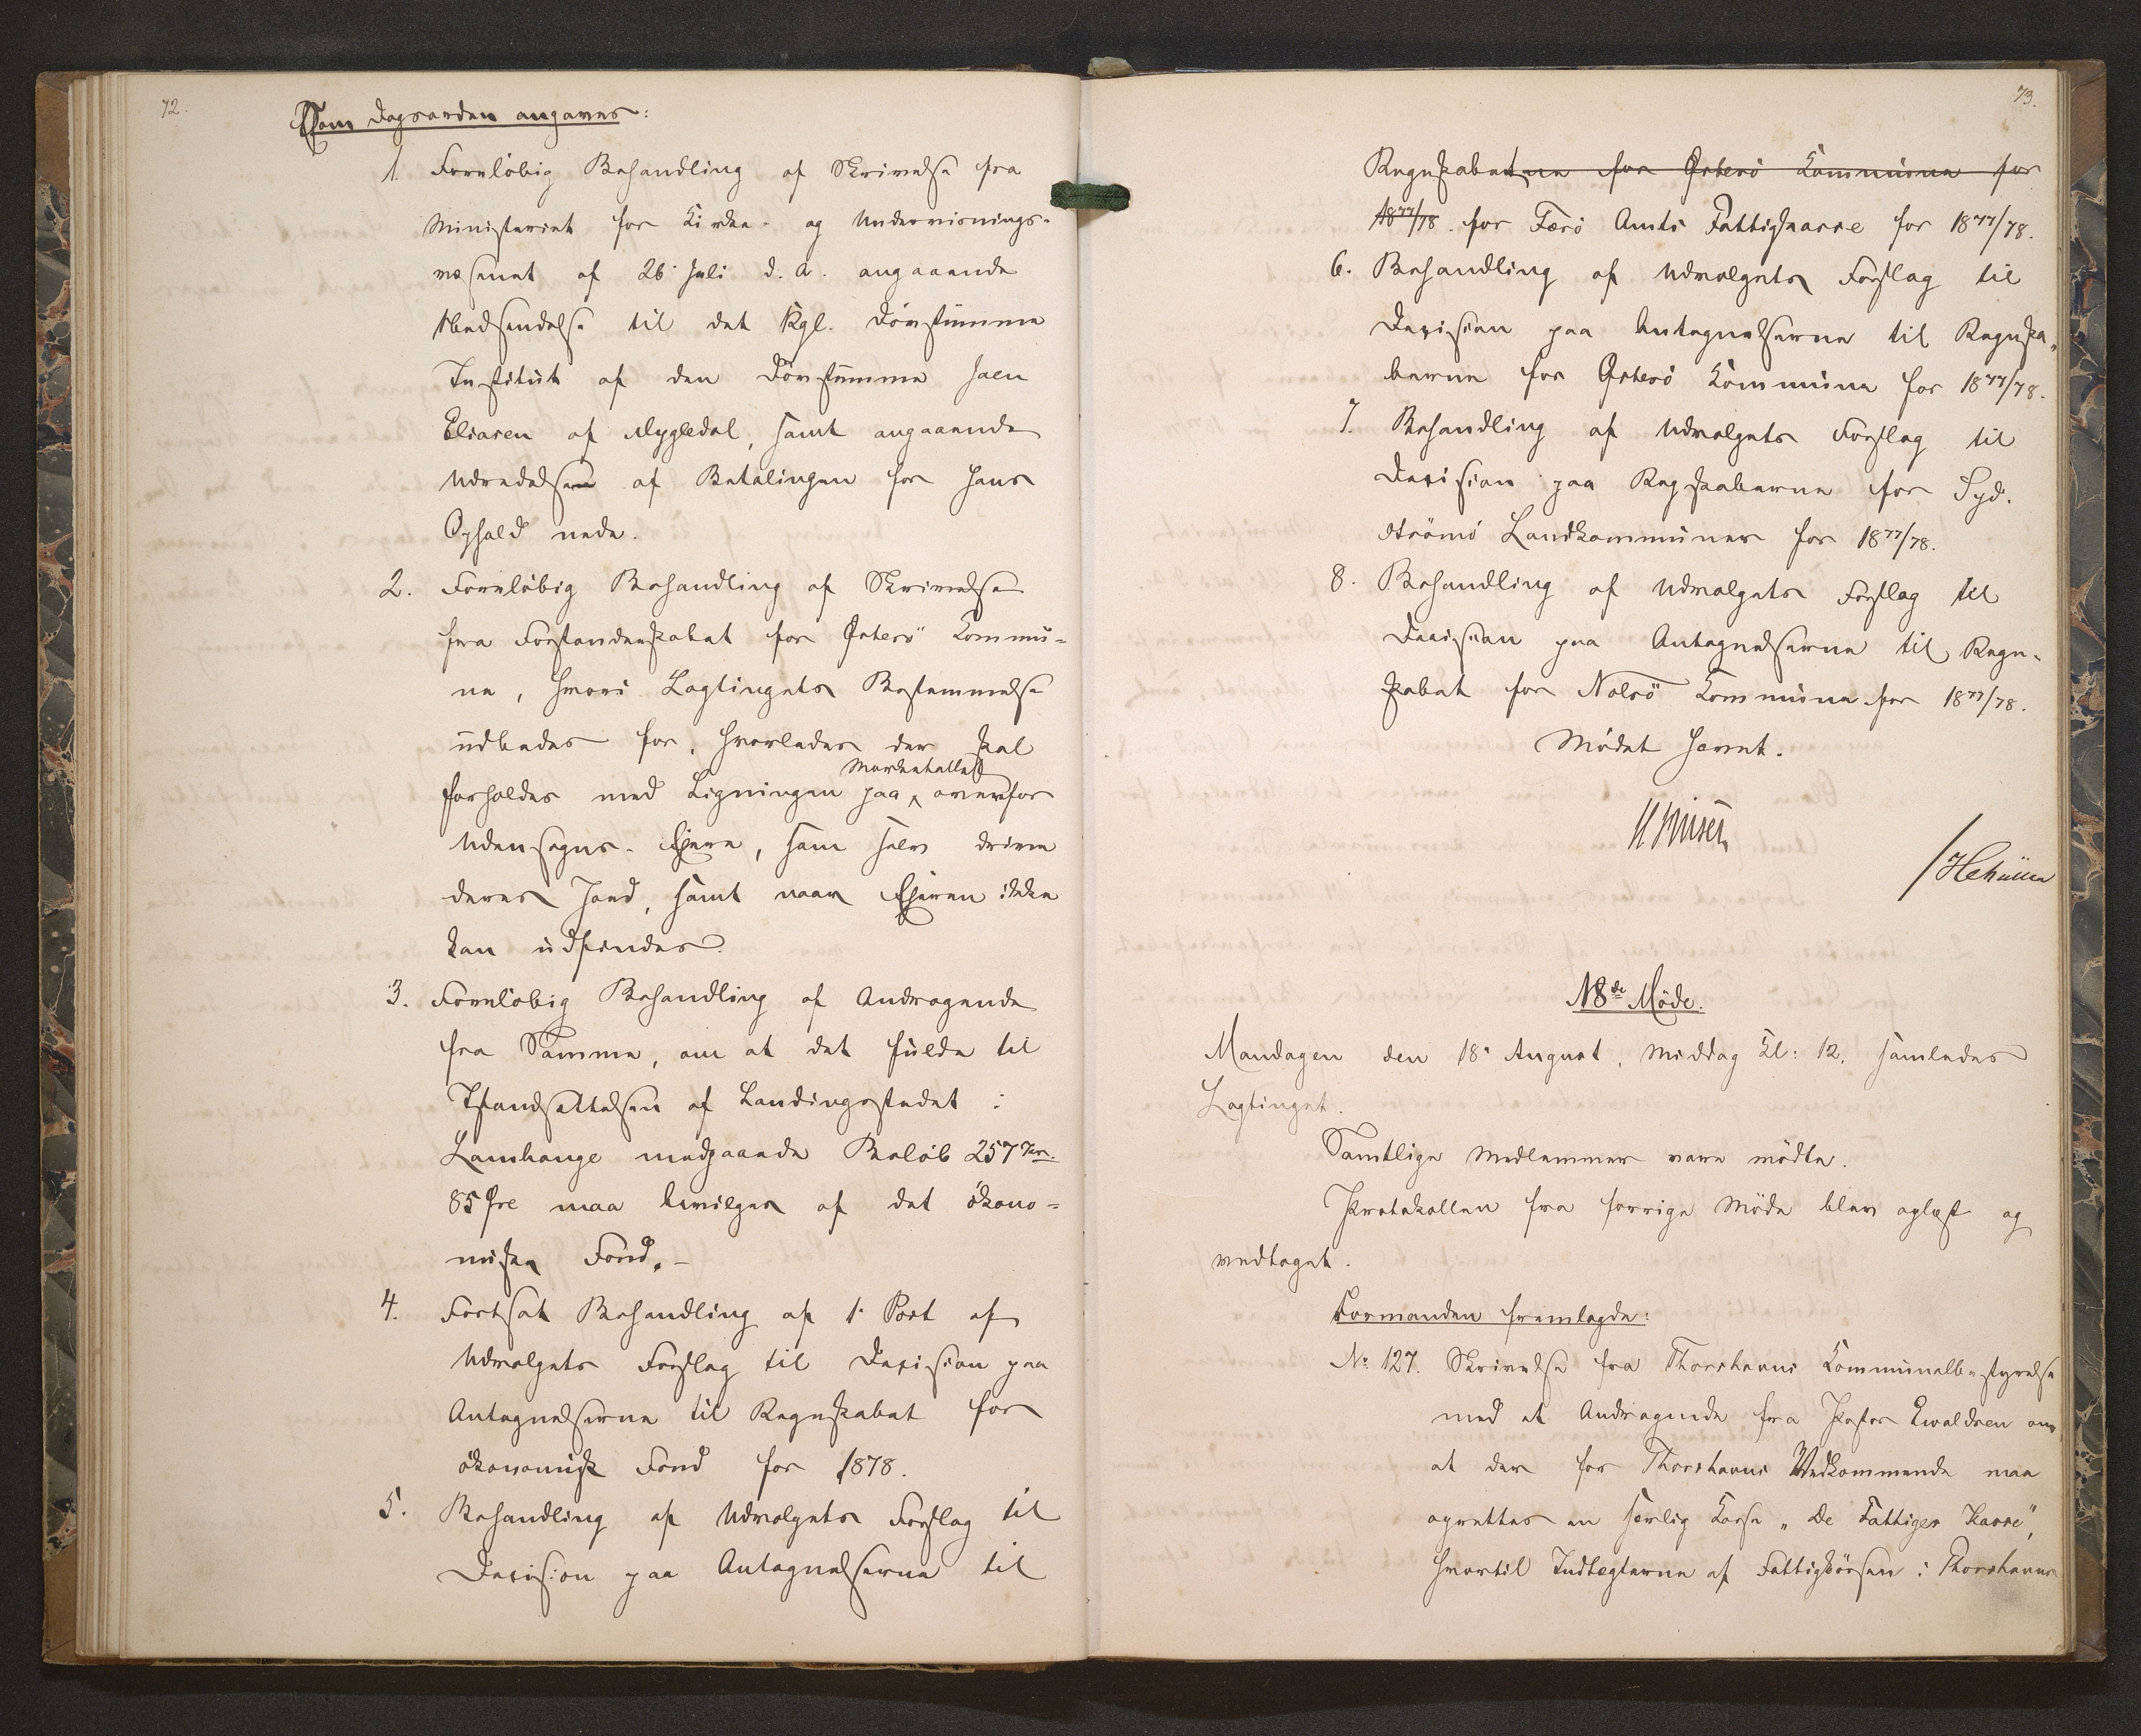 72.
Som Dagsorden angaves:
1. Foreløbig Behandling af Skrivelse fra
Ministeriet for Kirke- og Undervisnings-
væsenet af 26' Juli d. A. angaaende
Nedsendelse til det Kgl. Døvstumme
Institut af den Døvstumme Joen
Eliasen af Mygledal, samt angaaende
Udredelsen af Betalingen for hans
Ophold nede.
2. Foreløbig Behandling af Skrivelse
fra Forstanderskabet for Østerø Kommu-
ne, hvori Lagtingets Bestemmelse
udbedes for, hvorledes der skal
forholdes med Ligningen paa Markatallet overfor
Udensogns-Ejere, som selv drive
deres Jord, samt naar Ejeren ikke
kan udfindes.
3. Foreløbig Behandling af Andragende
fra Samme, om at det fulde til
Istandsættelsen af Landingsstedet i
Lamhauge medgaaende Beløb 257 Kr.
85 Øre maa bevilges af det økono-
miske Fond.-
4. Fortsat Behandling af 1' Post af
Udvalgets Forslag til Decision paa
Antegnelserne til Regnskabet for
økonomisk Fond for 1878.
5. Behandling af Udvalgets Forslag til
Decision paa Antegnelserne til
73.
Regnskabet erne for Østerø Kommune for
1877/78. for Færø Amts Fattigkasse for 1877/78.
6. Behandling af Udvalgets Forslag til
Decision paa Antegnelserne til Regnska-
berne for Østerø Kommune for 1877/78.
7. Behandling af Udvalgets Forslag til
Decision paa Regskaberne for Syd-
strømø Landkommuner for 1877/78.
8. Behandling af Udvalgets Forslag til
Decision paa Antegnelserne til Regn-
skabet for Nolsø Kommune for 1877/78.
Mødet hævet.
18de Møde.
Mandagen den 18' August, Middag Kl: 12, samledes
Lagtinget.
Samtlige Medlemmer vare mødte.
Protokollen fra forrige Møde blev oplæst og
vedtaget.
Formanden fremlagde:
No 127. Skrivelse fra Thorshavns Kommunalbestyrelse
med et Andragende fra Pastor Evaldsen om
at der for Thorshavns Vedkommende maa
oprettes en særlig Kasse „De Fattiges Kasse",
hvortil Indtægterne af Fattigbøssen i Thorshavns